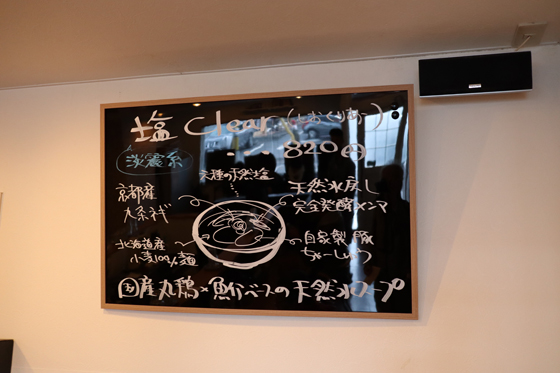 塩 Clear (しおくりあ)
820円
淡麗系
六種の天然塩
京都産
九条ネギ
天然水戻し
完全発酵メンマ
北海道産
小麦100%麺
自家製 豚
ちゃーしゅう
国産丸鶏×魚介ベースの天然水スープ